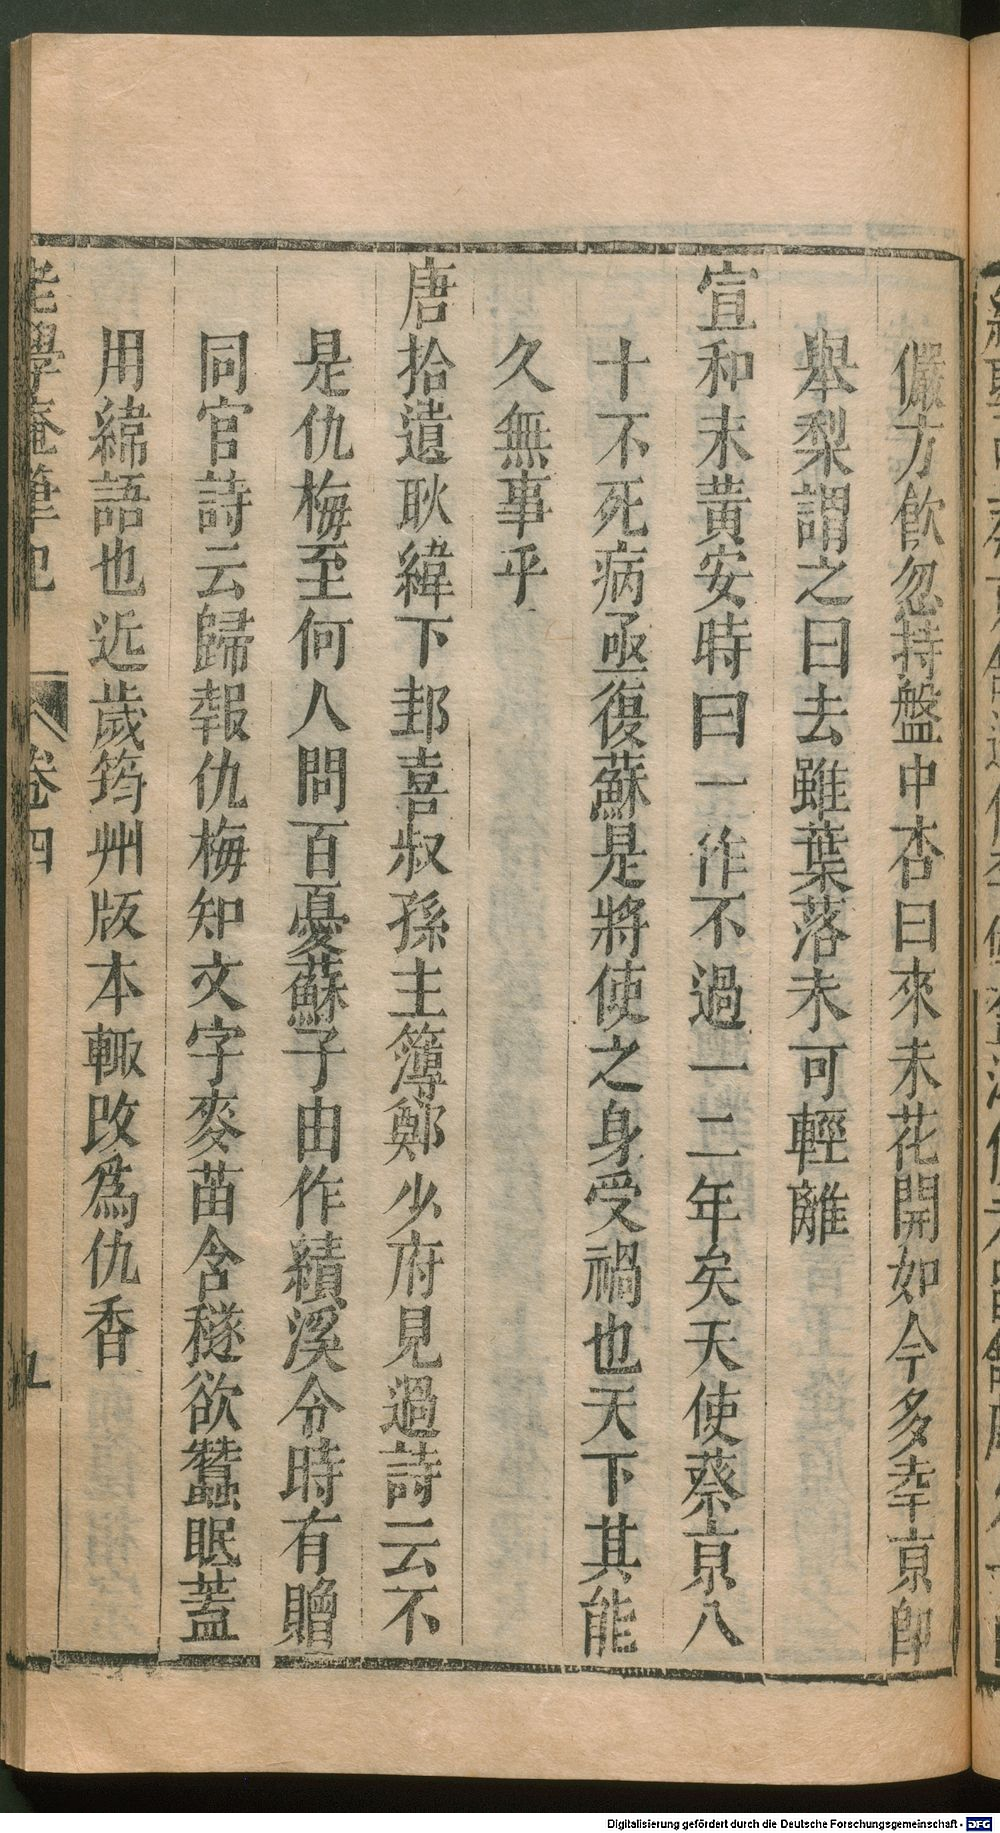 儼方飲忽持盤中杏曰來未花開如今多幸京卽
舉梨謂之曰去雖葉落未可輕離
宣和末黃安時曰一作不過一二年矣天使蔡京八
十不死病亟復蘇是將使之身受禍也天下其能
久無事乎
唐拾遺耿緯下邽喜叔孫主簿鄭少府見過詩云不
是仇梅至何人問百憂蘇子由作績溪令時有贈
同官詩云歸報仇梅知文字麥苗含穟欲蠶眠蓋
用緯語也近歲筠州版本輒改爲仇香
老學庵筆記 卷四 九
Digitalisierung gefördert durch die Deutsche Forschungsgemeinschaft - DFG